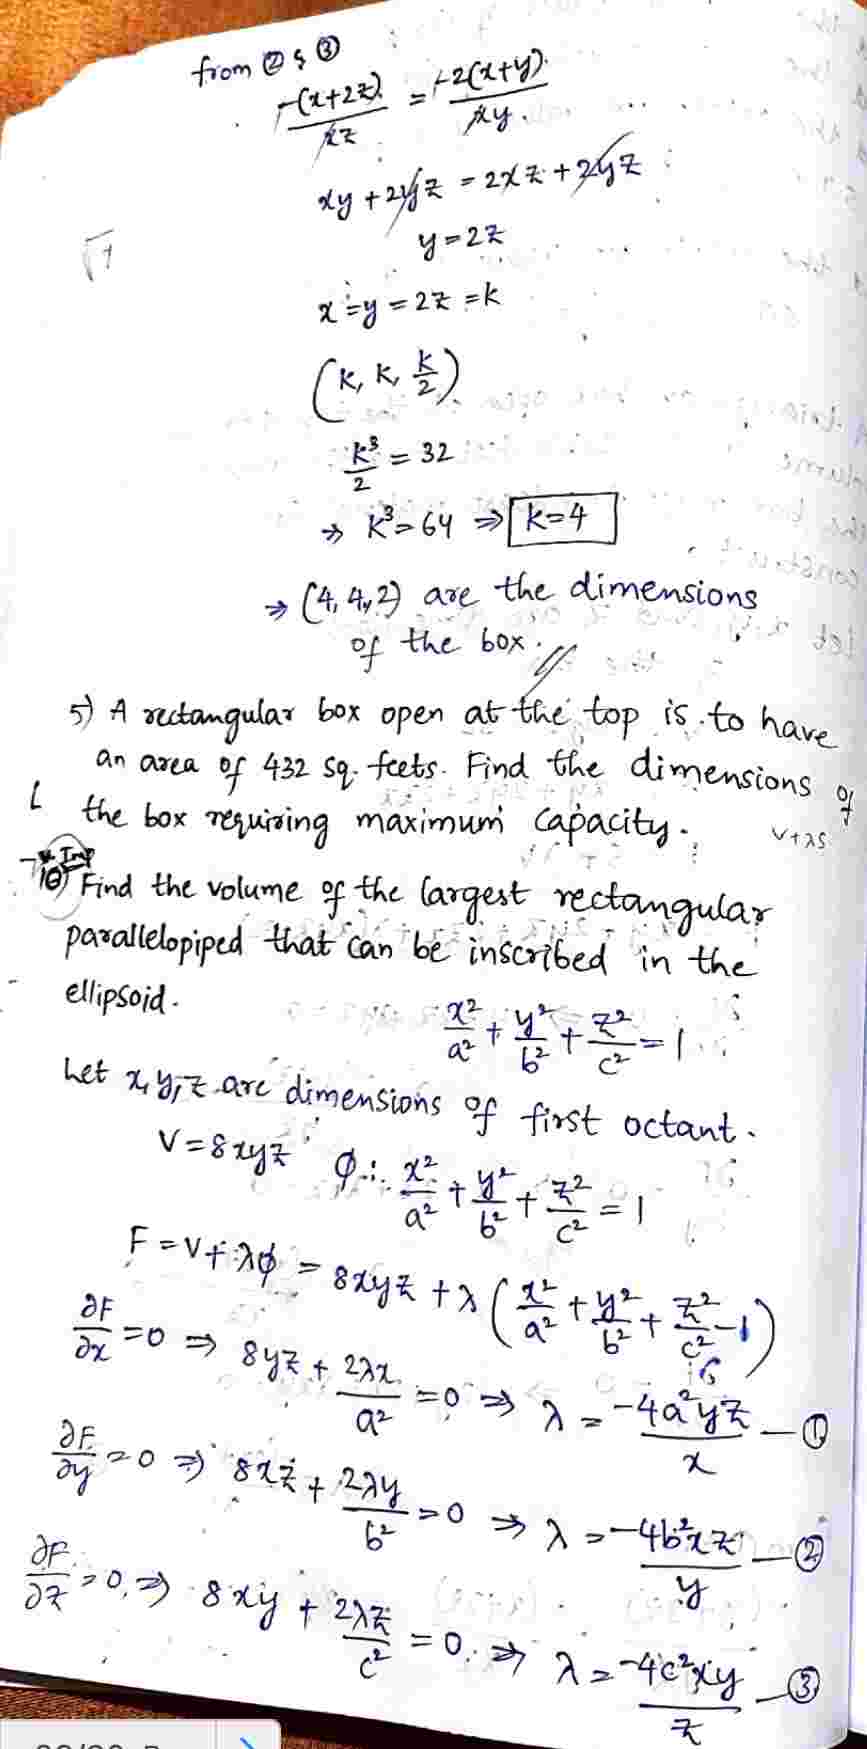 from ② & ③
-(x+2z)/xz = -2(x+y)/xy.
xy + 2yz = 2xz + 2yz
y = 2z
x = y = 2z = k
(k, k, k/2)
k³/2 = 32
→ k³ = 64 ⇒ k=4
→ (4, 4, 2) are the dimensions
of the box.
5) A rectangular box open at the top is to have
an area of 432 sq. feets. Find the dimensions of
the box requiring maximum capacity.
V+λS
* Imp
10) Find the volume of the largest rectangular
parallelopiped that can be inscribed in the
ellipsoid.
x²/a² + y²/b² + z²/c² = 1
Let x, y, z are dimensions of first octant.
V = 8xyz φ: x²/a² + y²/b² + z²/c² = 1
F = V + λφ = 8xyz + λ(x²/a² + y²/b² + z²/c² - 1)
∂F/∂x = 0 ⇒ 8yz + 2λx/a² = 0 ⇒ λ = -4a²yz/x — ①
∂F/∂y = 0 ⇒ 8xz + 2λy/b² = 0 ⇒ λ = -4b²xz/y — ②
∂F/∂z = 0 ⇒ 8xy + 2λz/c² = 0 ⇒ λ = -4c²xy/z — ③